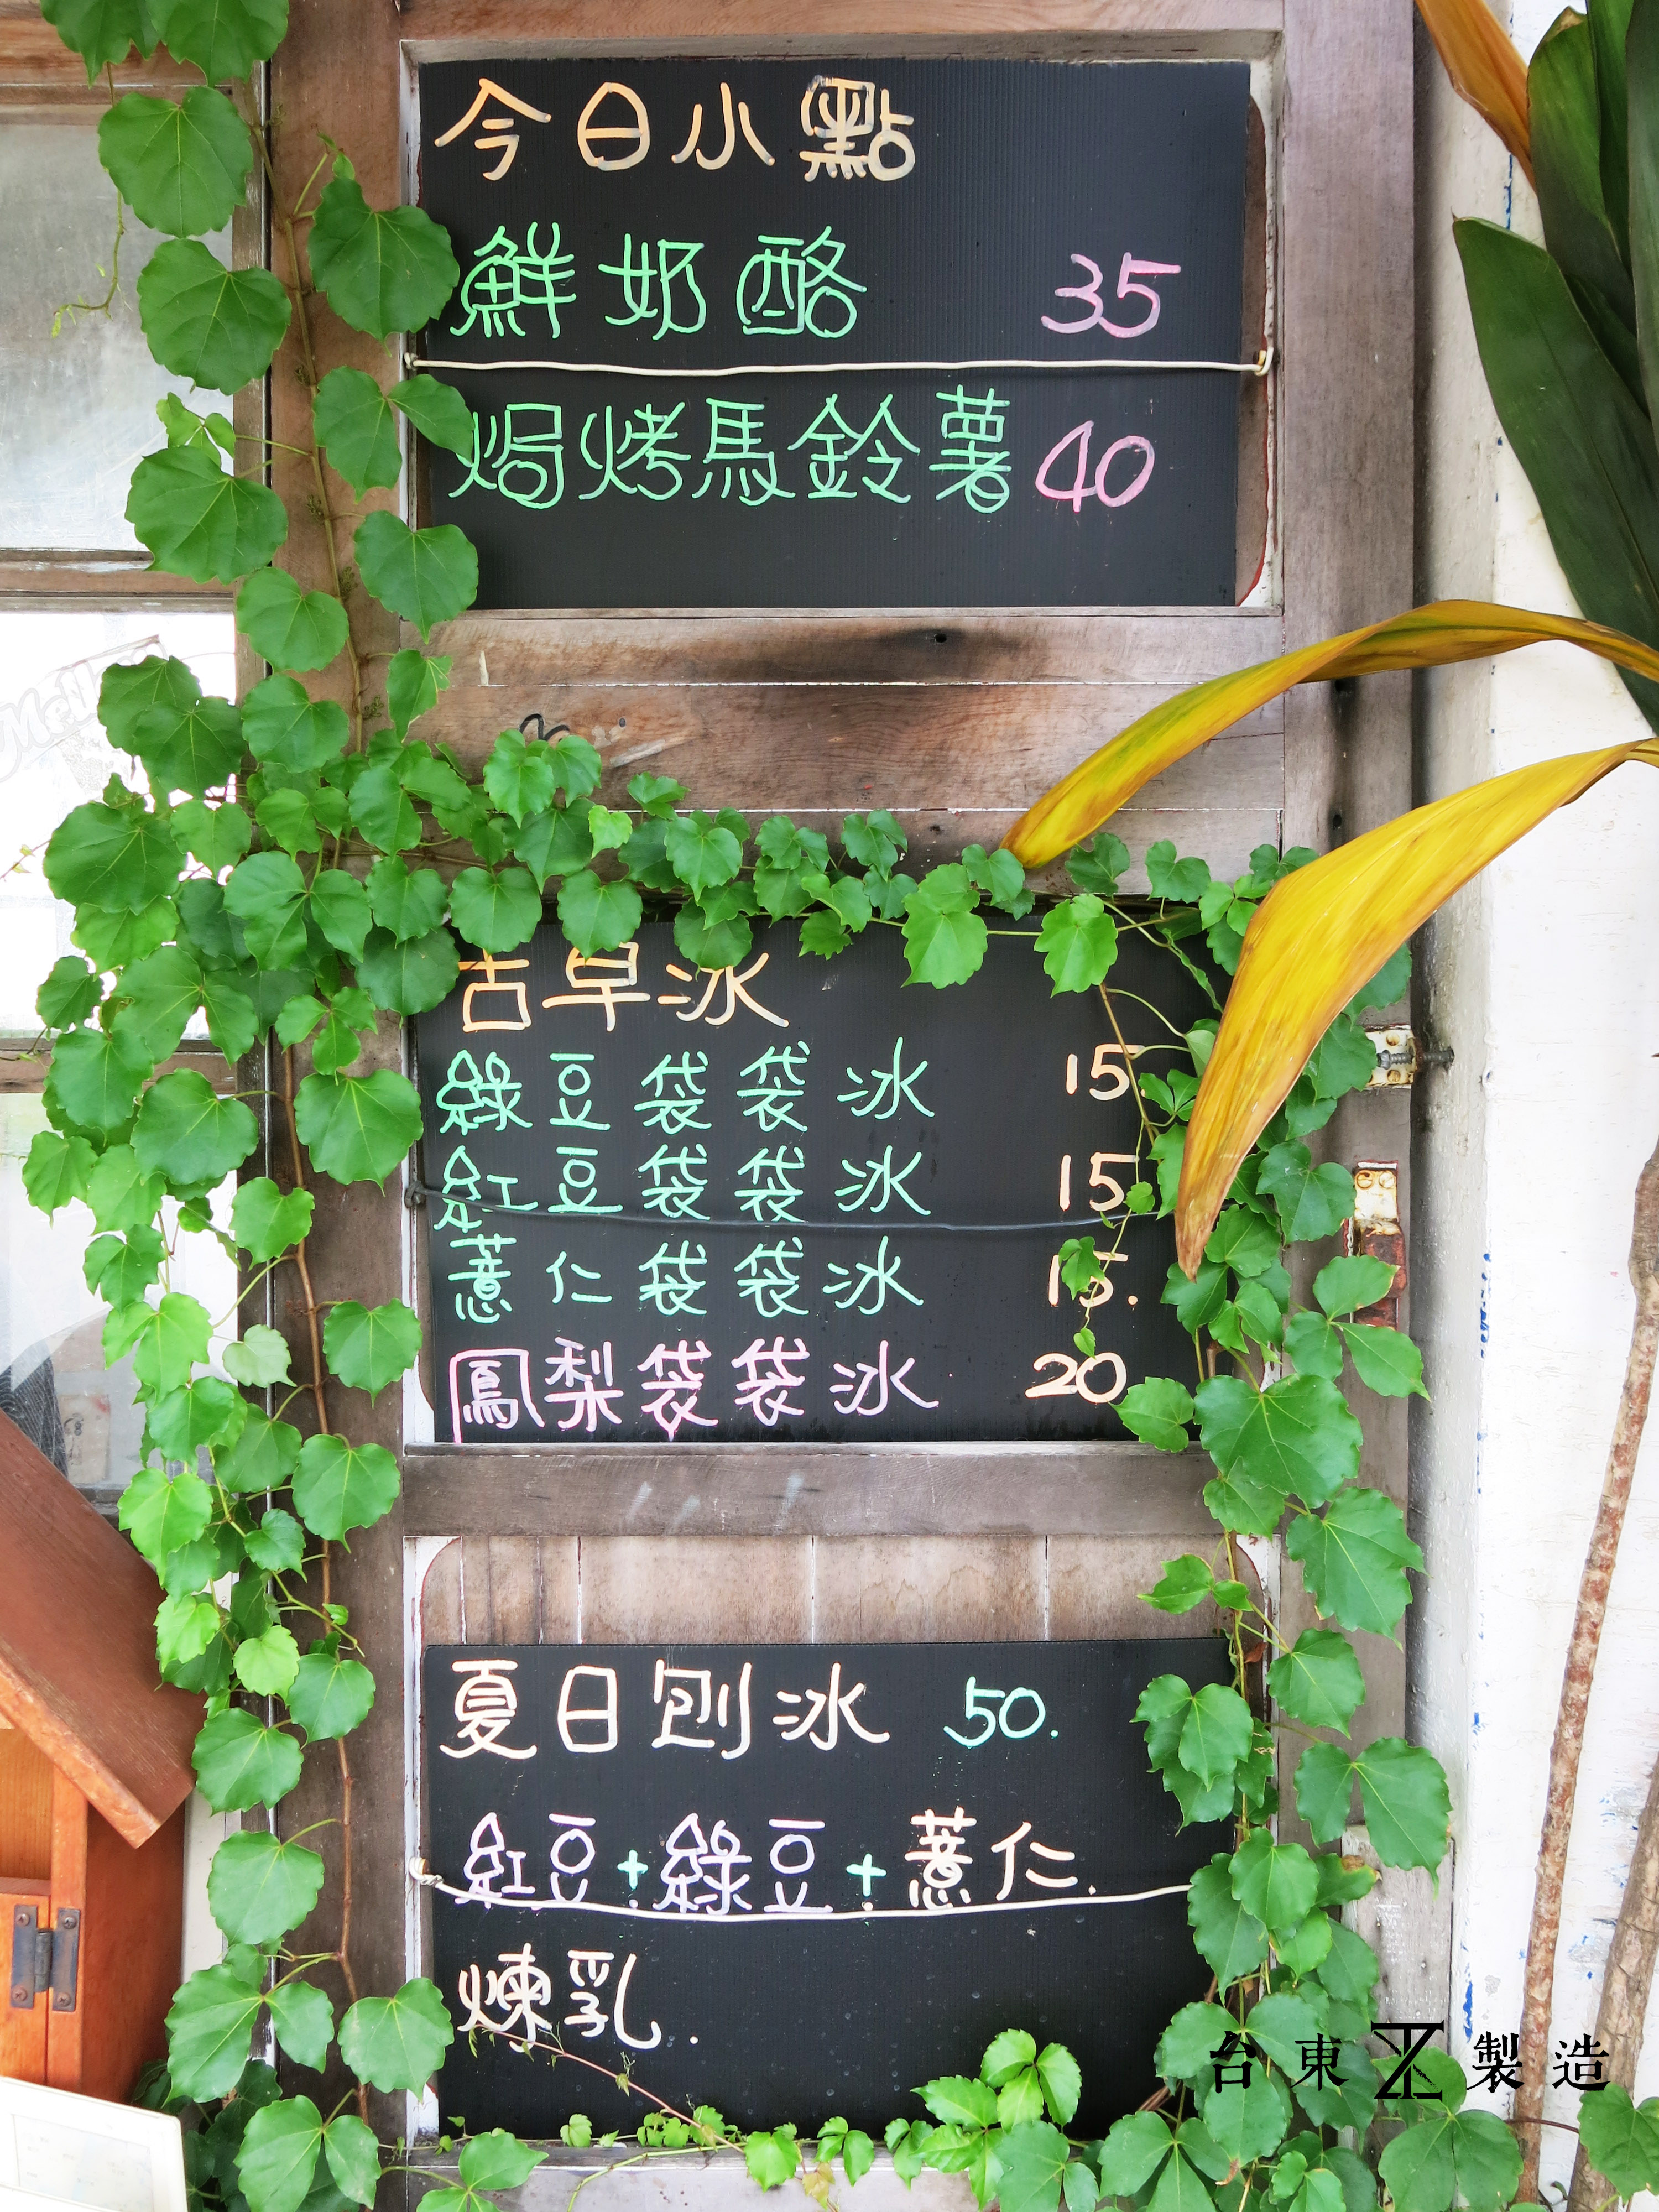 今日小點
鮮奶酪 35
焗烤馬鈴薯 40
古早冰
綠豆袋袋冰 15.
紅豆袋袋冰 15
薏仁袋袋冰 15.
鳳梨袋袋冰 20.
夏日刨冰 50.
紅豆+綠豆+薏仁.
煉乳.
台東製造